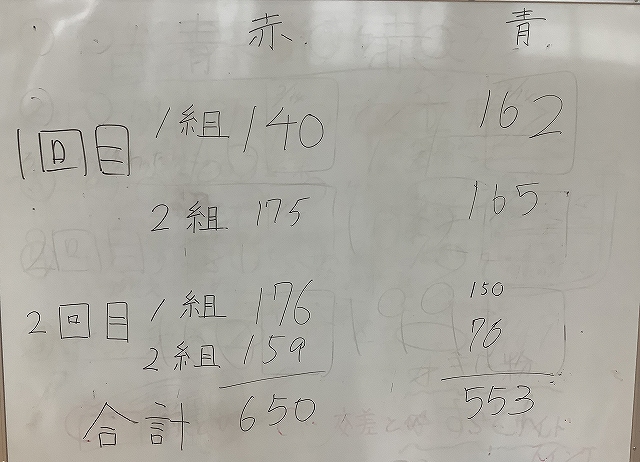 赤 青
1回目 1組 140 162
2組 175 165
2回目 1組 176 150
2組 159 76
合計 650 553